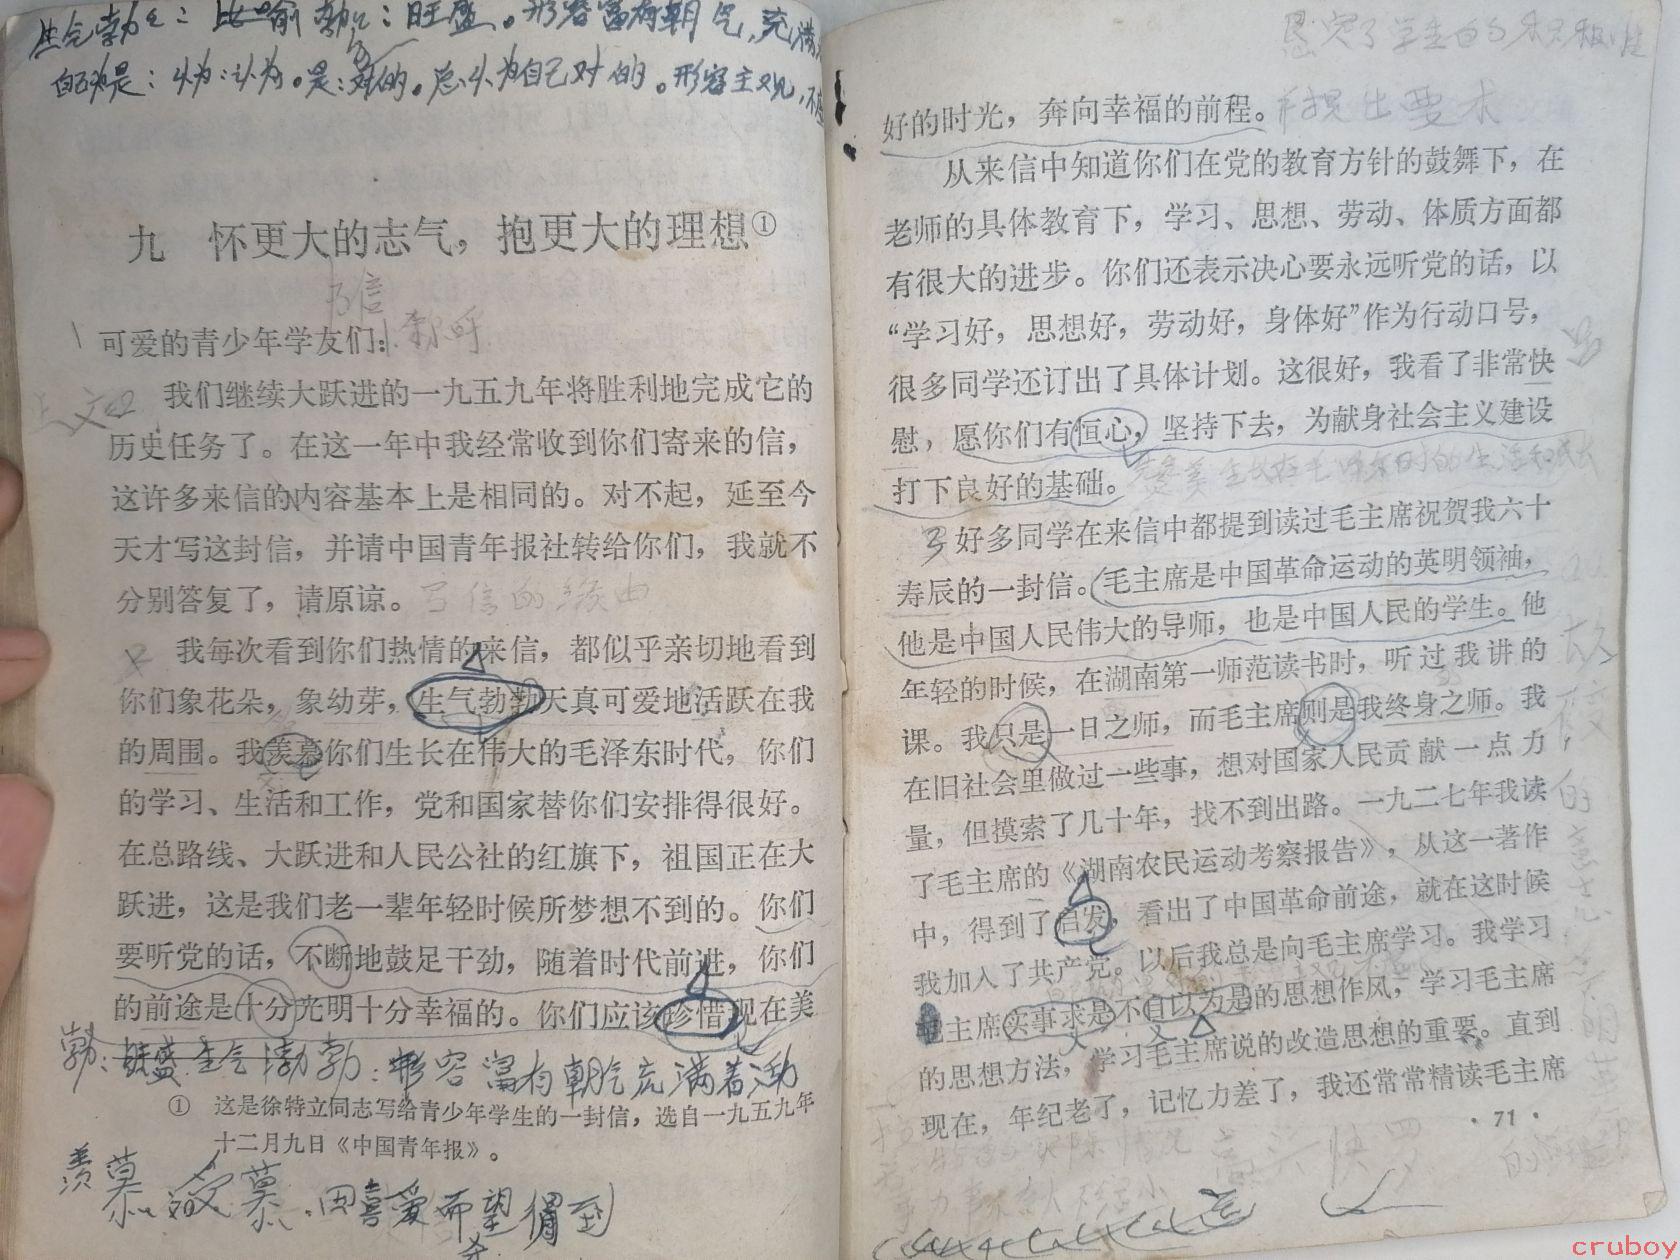 生气勃勃：比喻 勃勃：旺盛。形容富有朝气，充满
自以为是：以为：认为。是：对的。总以为自己对的。形容主观，不
九 怀更大的志气，抱更大的理想①
写信
称呼
可爱的青少年学友们：
正文
我们继续大跃进的一九五九年将胜利地完成它的
历史任务了。在这一年中我经常收到你们寄来的信，
这许多来信的内容基本上是相同的。对不起，延至今
天才写这封信，并请中国青年报社转给你们，我就不
分别答复了，请原谅。
写信的缘由
我每次看到你们热情的来信，都似乎亲切地看到
你们象花朵，象幼芽，生气勃勃天真可爱地活跃在我
的周围。我羡慕你们生长在伟大的毛泽东时代，你们
的学习、生活和工作，党和国家替你们安排得很好。
在总路线、大跃进和人民公社的红旗下，祖国正在大
跃进，这是我们老一辈年轻时候所梦想不到的。你们
要听党的话，不断地鼓足干劲，随着时代前进，你们
的前途是十分光明十分幸福的。你们应该珍惜现在美
勃：旺盛 生气勃勃：形容富有朝气充满着活
① 这是徐特立同志写给青少年学生的一封信，选自一九五九年
十二月九日《中国青年报》。
羡慕 慕 因喜爱而望得到
好的时光，奔向幸福的前程。
并提出要求
从来信中知道你们在党的教育方针的鼓舞下，在
老师的具体教育下，学习、思想、劳动、体质方面都
有很大的进步。你们还表示决心要永远听党的话，以
“学习好，思想好，劳动好，身体好”作为行动口号，
很多同学还订出了具体计划。这很好，我看了非常快
慰，愿你们有恒心，坚持下去，为献身社会主义建设
打下良好的基础。
好多同学在来信中都提到读过毛主席祝贺我六十
寿辰的一封信。毛主席是中国革命运动的英明领袖，
他是中国人民伟大的导师，也是中国人民的学生。他
年轻的时候，在湖南第一师范读书时，听过我讲的
课。我只是一日之师，而毛主席则是我终身之师。我
在旧社会里做过一些事，想对国家人民贡献一点力
量，但摸索了几十年，找不到出路。一九二七年我读
了毛主席的《湖南农民运动考察报告》，从这一著作
中，得到了启发，看出了中国革命前途，就在这时候
我加入了共产党。以后我总是向毛主席学习。我学习
毛主席实事求是不自以为是的思想作风，学习毛主席
的思想方法，学习毛主席说的改造思想的重要。直到
现在，年纪老了，记忆力差了，我还常常精读毛主席
·71·
cruboy